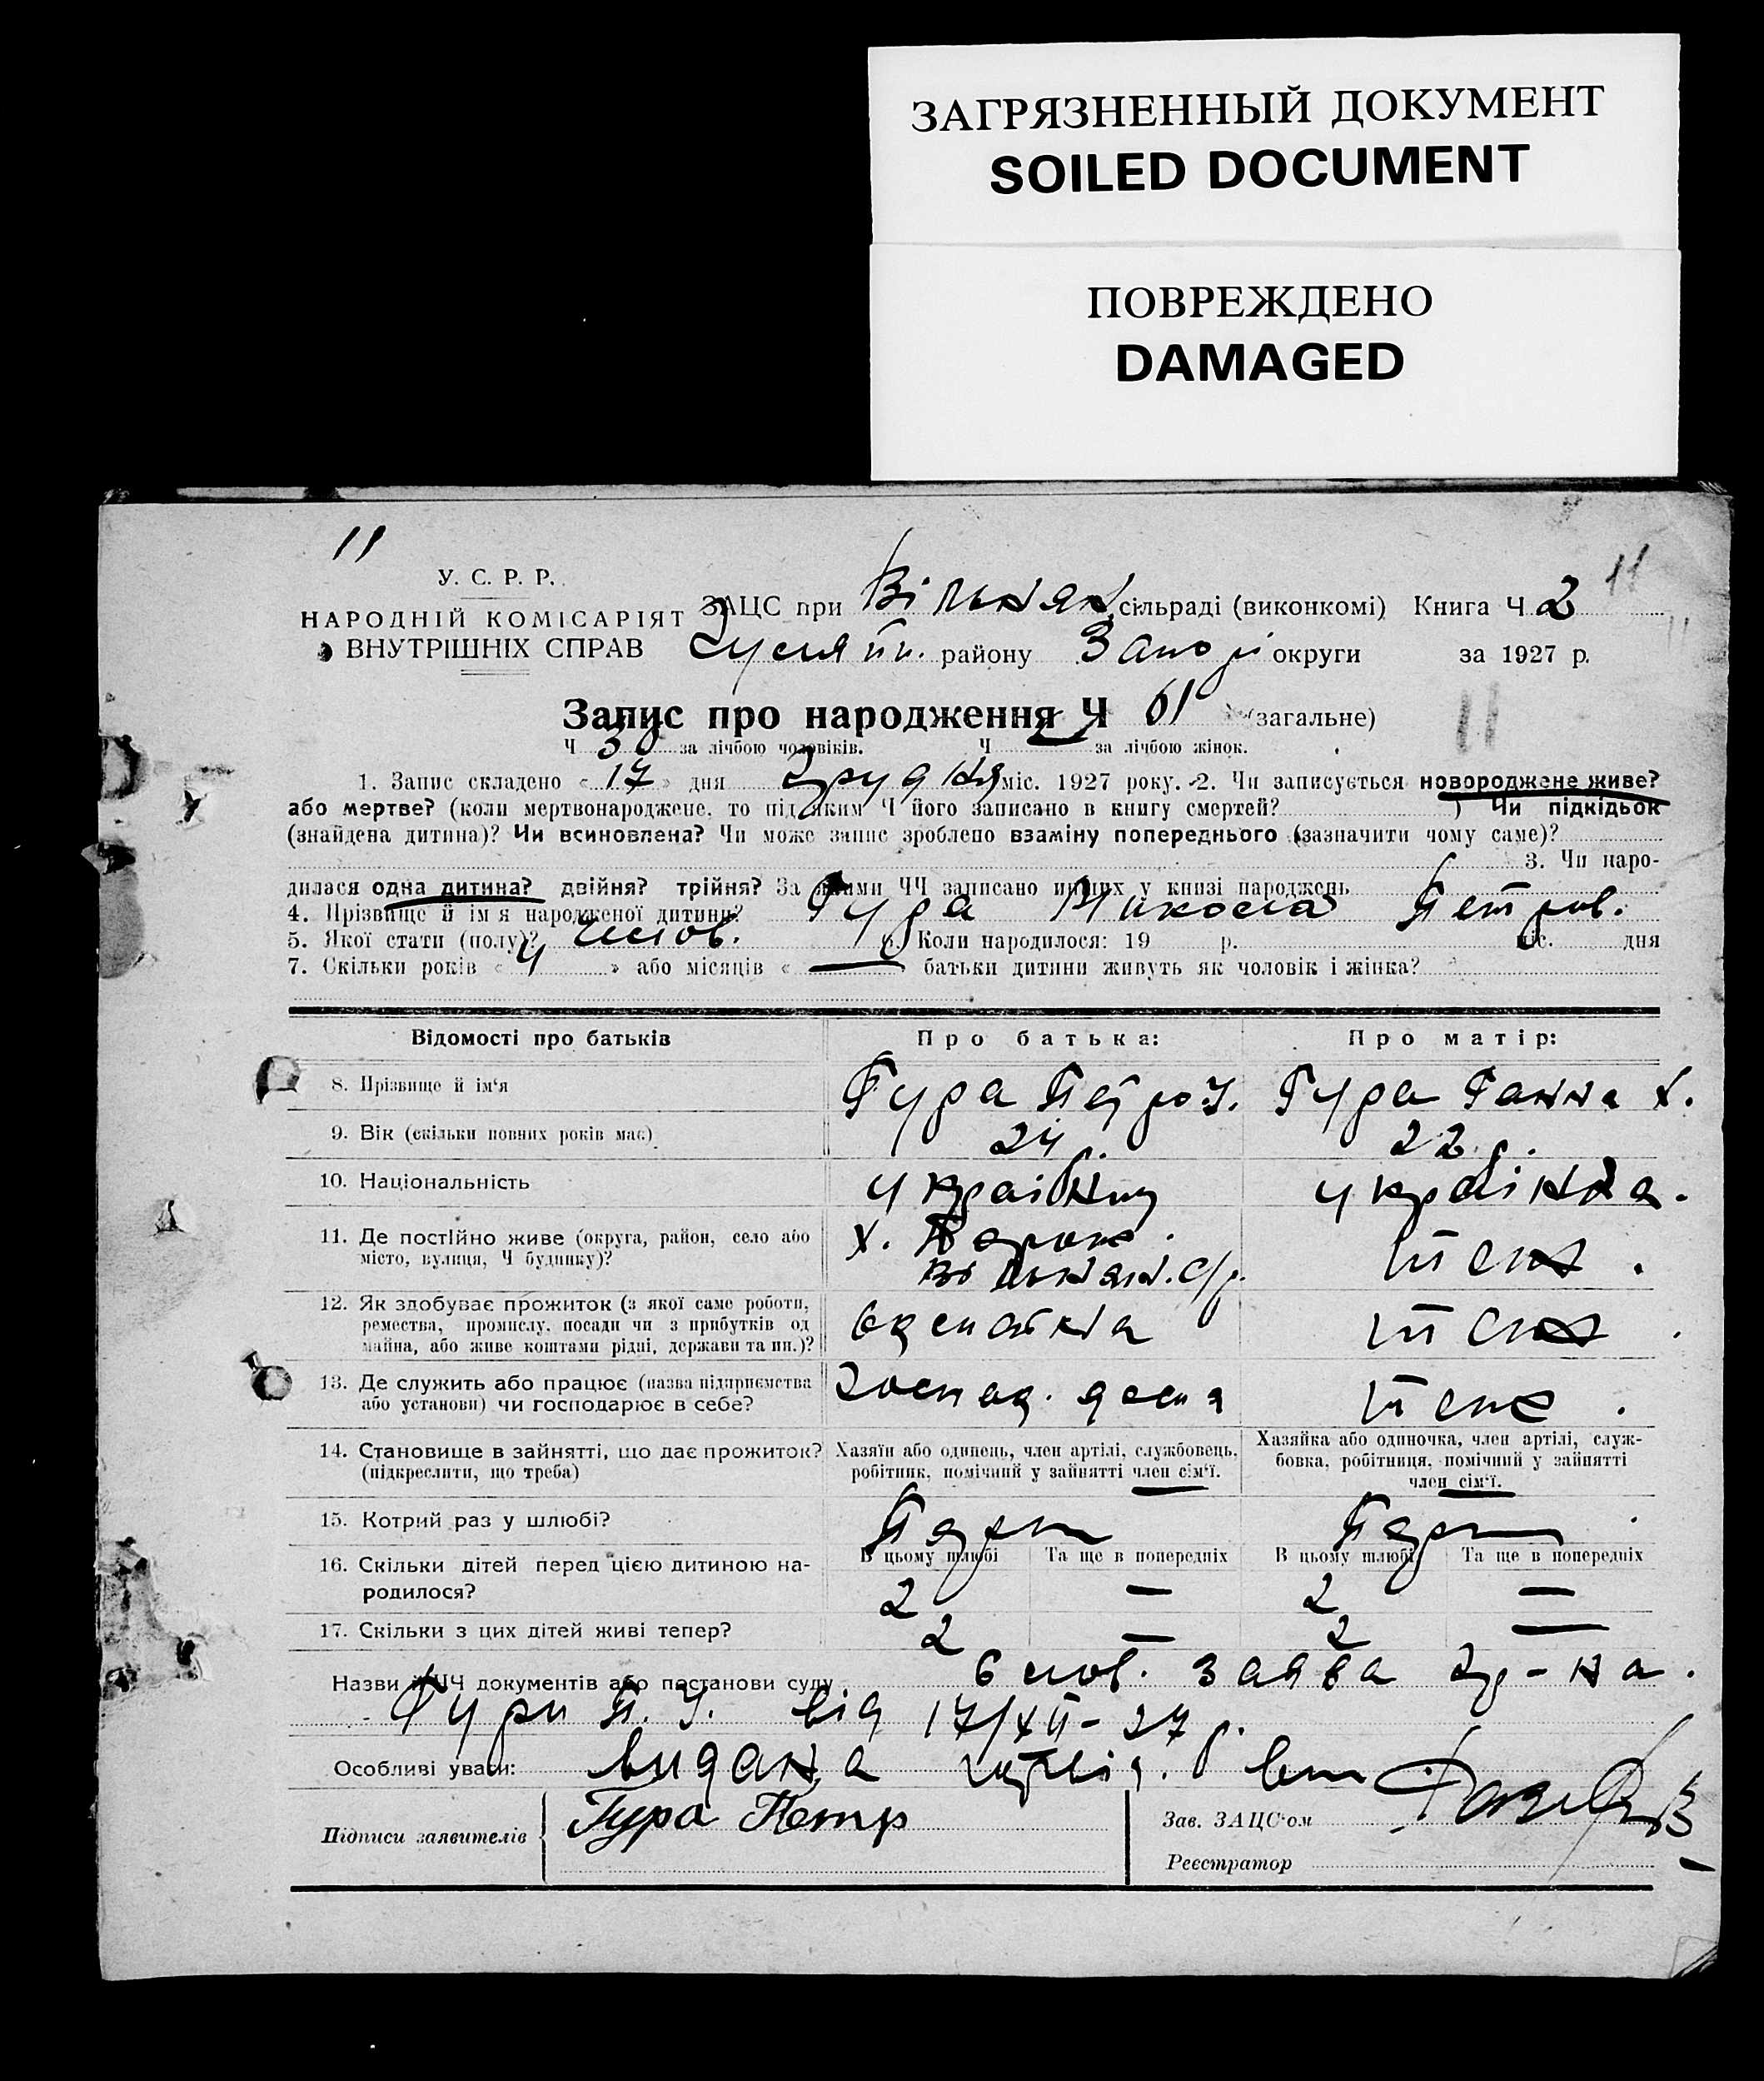 ЗАГРЯЗНЕННЫЙ ДОКУМЕНТ
SOILED DOCUMENT
ПОВРЕЖДЕНО
DAMAGED
11
11
У. С. Р. Р.
НАРОДНІЙ КОМІСАРІЯТ
ВНУТРІШНІХ СПРАВ
ЗАЦС при Вільнян. сільраді (виконкомі) Книга Ч. 2
району Запоріз округи за 1927 р.
11
Запис про народження Ч 61 (загальне)
Ч 30 за лічбою чоловіків. Ч — за лічбою жінок.
1. Запис складено « 17 » дня Грудня міс. 1927 року. 2. Чи записується новороджене живе?
або мертве? (коли мертвонароджене, то під яким Ч його записано в книгу смертей? ) Чи підкідьок
(знайдена дитина)? Чи всиновлена? Чи може запис зроблено взаміну попереднього (зазначити чому саме)?
3. Чи наро-
дилася одна дитина? двійня? трійня? За якими ЧЧ записано инших у книзі народжень
4. Прізвище й ім'я народженої дитини? Гура Микола Петров.
5. Якої стати (полу)? Чолов. 6. Коли народилося: 19 р. міс. дня
7. Скільки років « 4 » або місяців « — » батьки дитини живуть як чоловік і жінка?
Відомості про батьків Про батька: Про матір:
8. Прізвище й ім'я Гура Петро У. Гура Ганна Х.
9. Вік (скільки повних років має) 24 р. 22 р.
10. Національність Українец Українка.
11. Де постійно живе (округа, район, село або
місто, вулиця, Ч будинку)?
х.
Вільнян. с/р. теж.
12. Як здобуває прожиток (з якої саме роботи,
ремества, промислу, посади чи з прибутків од
майна, або живе коштами рідні, держави та ин.)? теж.
13. Де служить або працює (назва підприємства
або установи) чи господарює в себе? господ. теж.
14. Становище в зайнятті, що дає прожиток?
(підкреслити, що треба)
Хазяїн або одинець, член артілі, службовець,
робітник, помічний у зайнятті член сім'ї.
Хазяйка або одиночка, член артілі, служ-
бовка, робітниця, помічний у зайнятті
член сім'ї.
15. Котрий раз у шлюбі?
В цьому шлюбі Та ще в попередніх В цьому шлюбі Та ще в попередніх
16. Скільки дітей перед цією дитиною на-
родилося? 2 — 2 —
17. Скільки з цих дітей живі тепер? 2 — 2 —
Назви й ЧЧ документів або постанови суду слов. заява гр-на.
Гури П. У. від 17/XII-27 р.
Особливі уваги: видана
Підписи заявителів Гура Петр
Зав. ЗАЦС'ом
Реєстратор